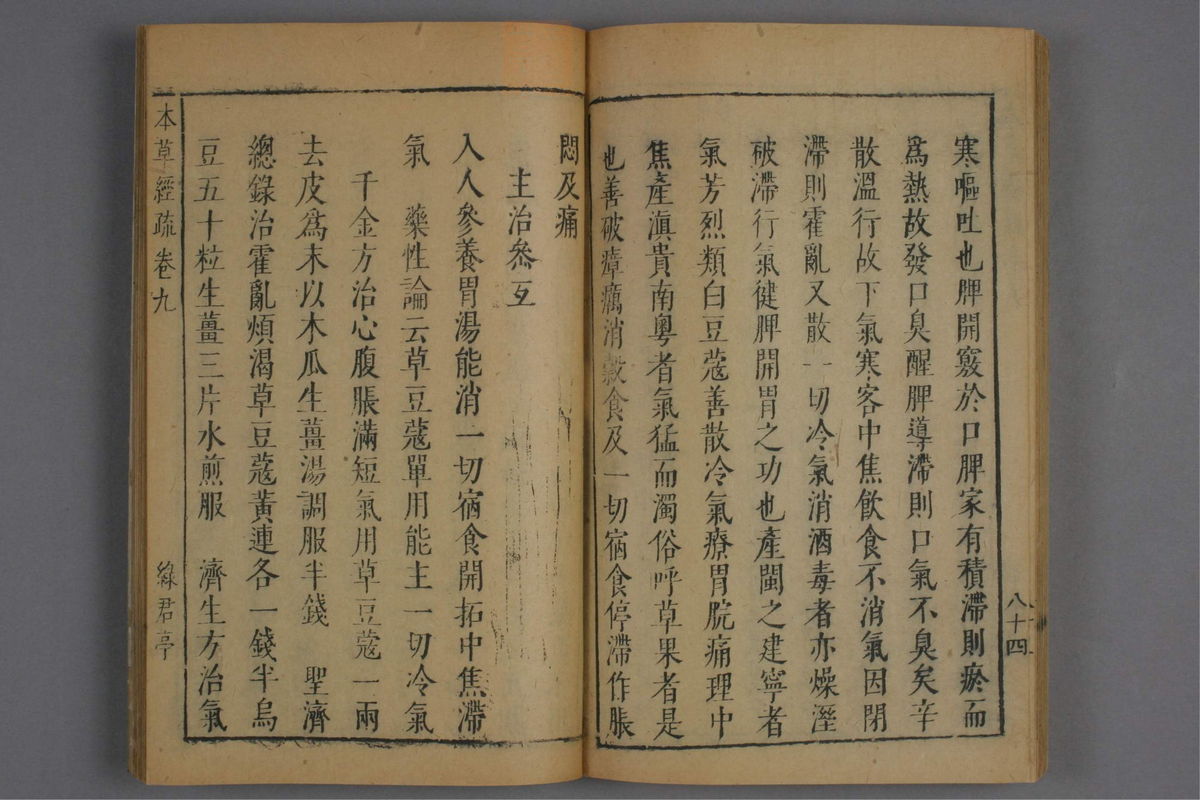 寒嘔吐也脾開竅於口脾家有積滯則瘀而
爲熱故發口臭醒脾導滯則口氣不臭矣辛
散溫行故下氣寒客中焦飲食不消氣因閉
滯則霍亂又散一切冷氣消酒毒者亦燥溼
破滯行氣健脾開胃之功也產閩之建寧者
氣芳烈類白豆蔻善散冷氣療胃脘痛理中
焦產滇貴南粵者氣猛而濁俗呼草果者是
也善破瘴癘消穀食及一切宿食停滯作脹
八十四
悶及痛
主治叅互
入人參養胃湯能消一切宿食開拓中焦滯
氣　藥性論云草豆蔻單用能主一切冷氣
千金方治心腹脹滿短氣用草豆蔻一兩
去皮爲末以木瓜生薑湯調服半錢　聖濟
總錄治霍亂煩渴草豆蔻黃連各一錢半烏
豆五十粒生薑三片水煎服　濟生方治氣
本草經疏 卷九 綠君亭